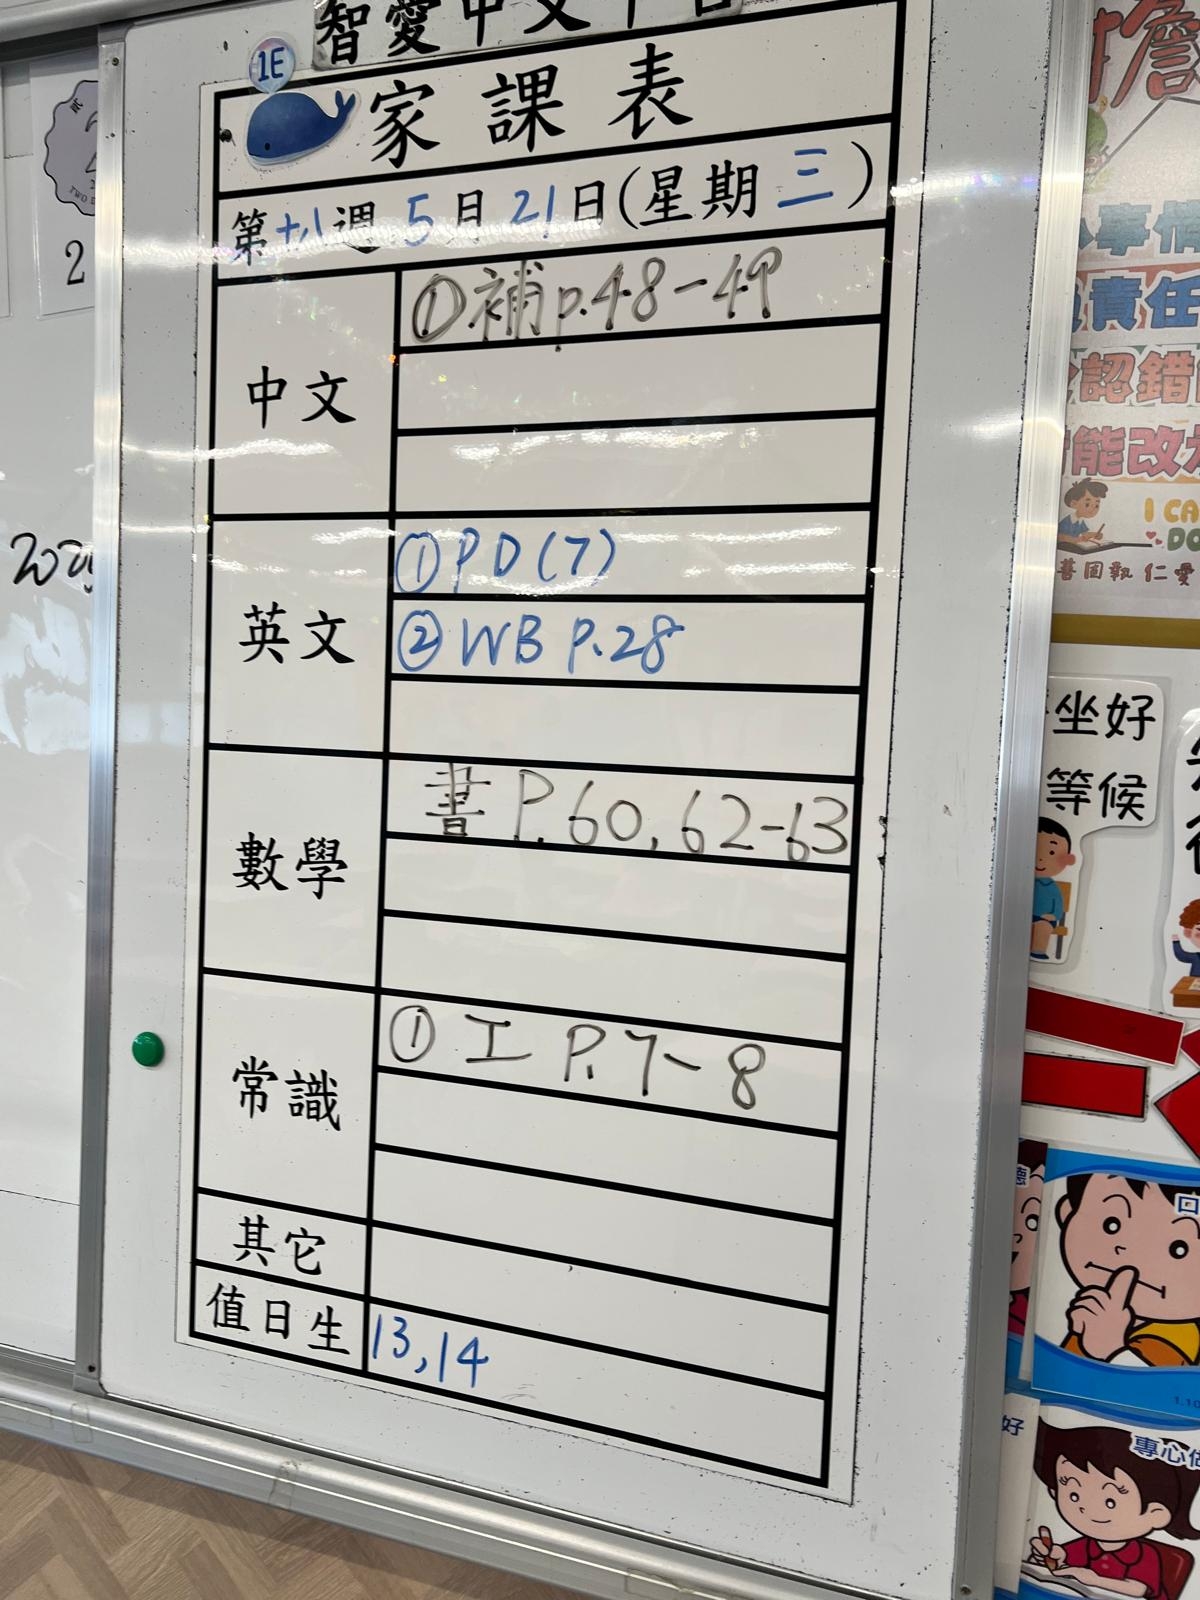 智愛中文平台
1E
家課表
第十八週 5月21日(星期三)
中文
①補p.48-49
英文
①PD(7)
②WB P.28
數學
書 P.60,62-63
常識
①工 P.7-8
其它
值日生 13,14
2
TWO
2025
事情
責任
認錯
能改
I CA
DO
善固執 仁愛
坐好
等候
口
1.10
好
專心